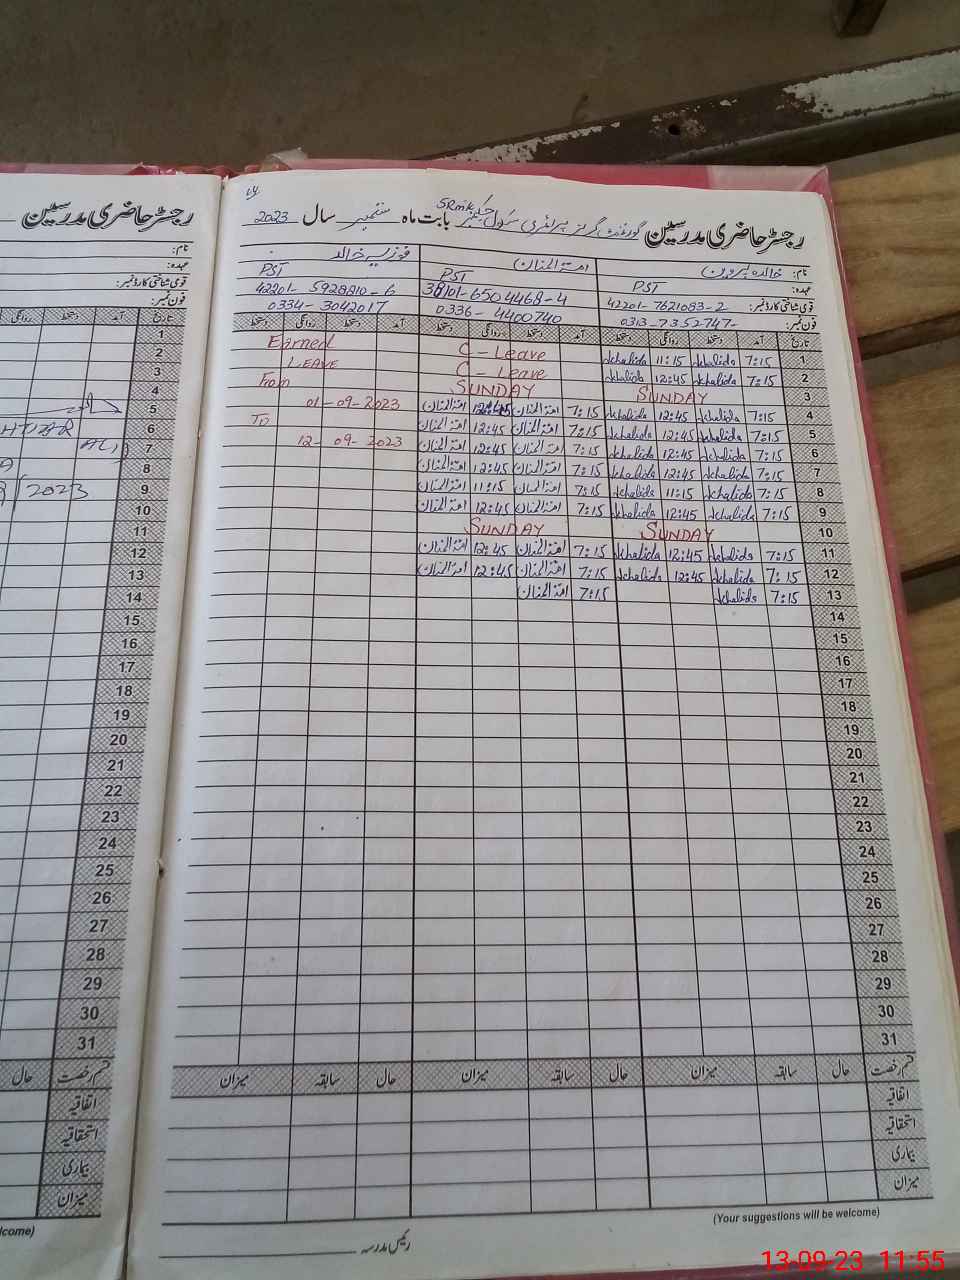 رجسٹر حاضری مدرسین
نام:
عہدہ:
قومی شناختی کارڈ نمبر:
فون نمبر:
تاریخ آمد دستخط روانگی دستخط
1
2
3
4
5
6
7
8
9
10
11
12
13
14
15
16
17
18
19
20
21
22
23
24
25
26
27
28
29
30
31
2023
قسم رخصت حال
اتفاقیہ
استحقاقیہ
بیماری
میزان
lcome)
رجسٹر حاضری مدرسین گورنمنٹ گرلز پرائمری سکول SRmk بابت ماہ ستمبر سال 2023
نام: خالدہ پروین امتہ المنان فوزیہ خالد
عہدہ: PST PST PST
قومی شناختی کارڈ نمبر: 42201-7621083-2 38101-6504468-4 42201-5928810-6
فون نمبر: 0313-7352747- 0336-4400740 0334-3042017
تاریخ آمد دستخط روانگی دستخط آمد دستخط روانگی دستخط آمد دستخط روانگی دستخط
1 7:15 khalida 11:15 khalida C-Leave Earned
2 7:15 khalida 12:45 khalida C-Leave LEAVE
3 SUNDAY SUNDAY From
4 7:15 khalida 12:45 khalida 7:15 امتہ المنان 12:45 امتہ المنان 01-09-2023
5 7:15 khalida 12:45 khalida 7:15 امتہ المنان 12:45 امتہ المنان To
6 7:15 khalida 12:45 khalida 7:15 امتہ المنان 12:45 امتہ المنان 12-09-2023
7 7:15 khalida 12:45 khalida 7:15 امتہ المنان 12:45 امتہ المنان
8 7:15 khalida 11:15 khalida 7:15 امتہ المنان 11:15 امتہ المنان
9 7:15 khalida 12:45 khalida 7:15 امتہ المنان 12:45 امتہ المنان
10 SUNDAY SUNDAY
11 7:15 khalida 12:45 khalida 7:15 امتہ المنان 12:45 امتہ المنان
12 7:15 khalida 12:45 khalida 7:15 امتہ المنان 12:45 امتہ المنان
13 7:15 khalida 7:15 امتہ المنان
14
15
16
17
18
19
20
21
22
23
24
25
26
27
28
29
30
31
قسم رخصت حال سابقہ میزان حال سابقہ میزان حال سابقہ میزان
اتفاقیہ
استحقاقیہ
بیماری
میزان
(Your suggestions will be welcome)
رئیس مدرسہ
13-09-23 11:55